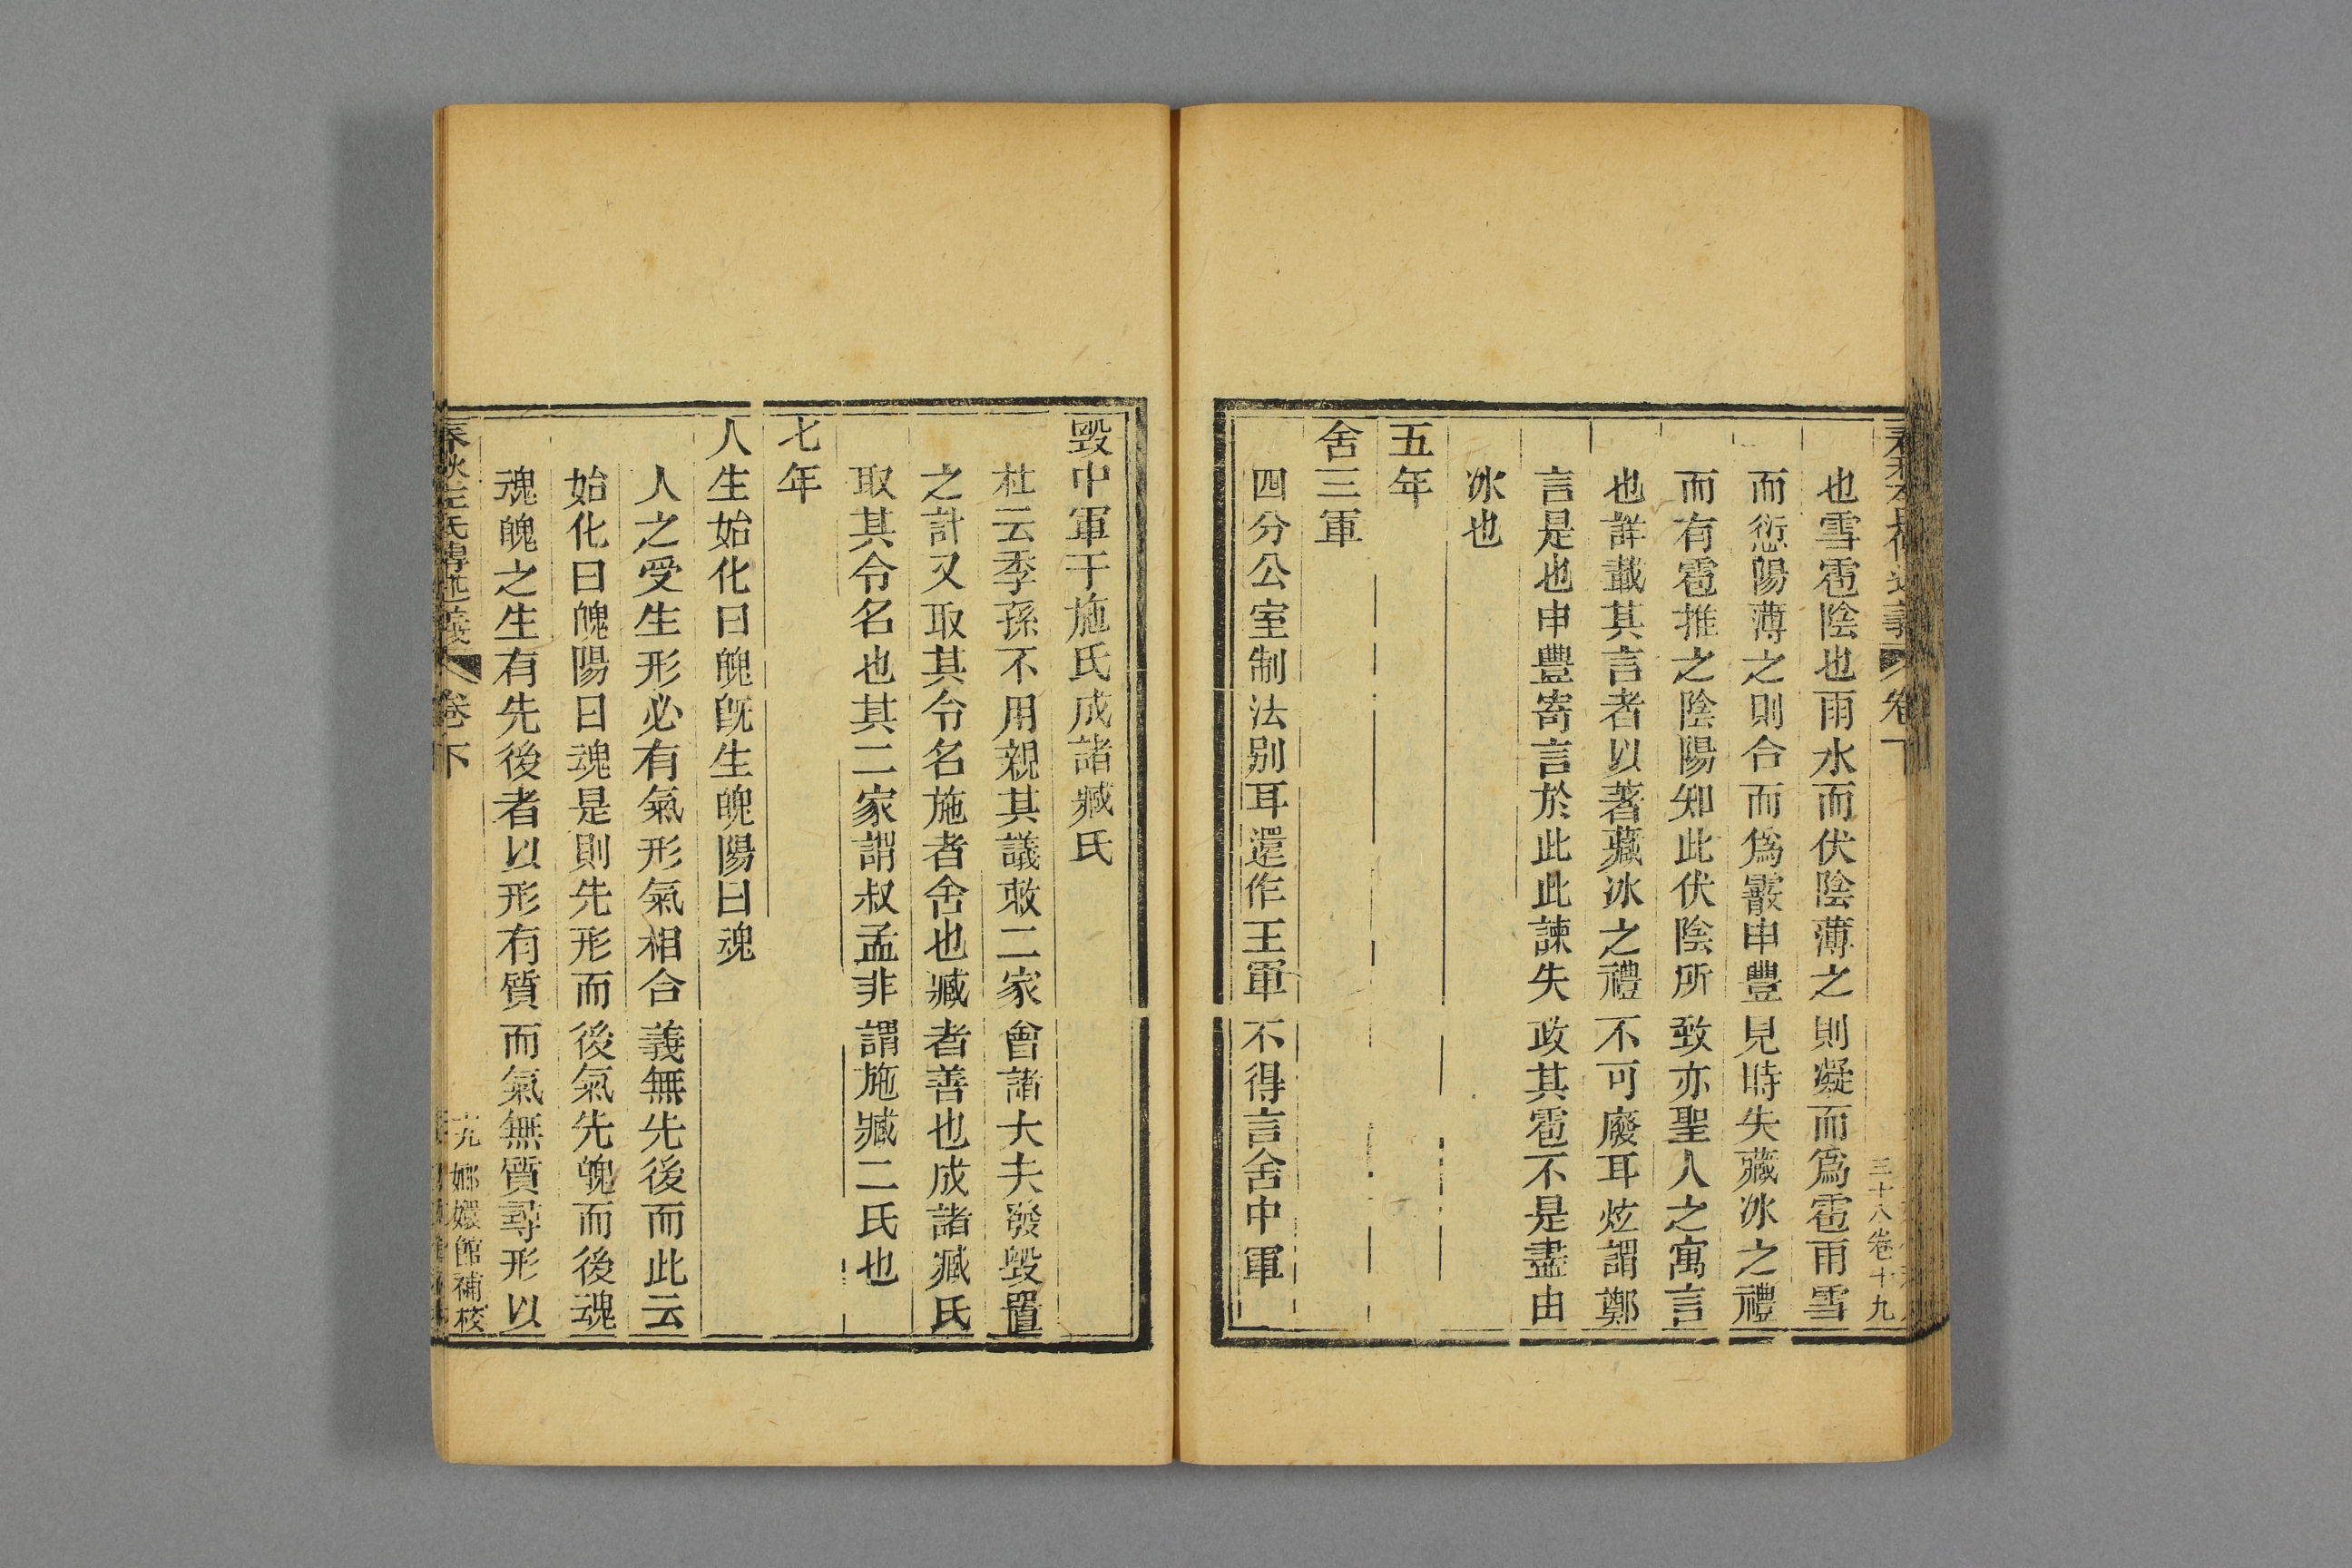 三十八卷十九
也雪雹陰也雨水而伏陰薄之則凝而爲雹雨雪
而愆陽薄之則合而爲霰申豐見時失藏冰之禮
而有雹推之陰陽知此伏陰所致亦聖人之寓言
也詳載其言者以著藏冰之禮不可廢耳炫謂鄭
言是也申豐寄言於此此諫失政其雹不是盡由
冰也
五年
舍三軍
四分公室制法別耳還作王軍不得言舍中軍
毀中軍于施氏成諸臧氏
杜云季孫不用親其議敕二家會諸大夫發毀置
之計又取其令名施者舍也臧者善也成諸臧氏
取其令名也其二家謂叔孟非謂施臧二氏也
七年
人生始化曰魄旣生魄陽曰魂
人之受生形必有氣形氣相合義無先後而此云
始化曰魄陽曰魂是則先形而後氣先魄而後魂
魂魄之生有先後者以形有質而氣無質尋形以
春秋左氏傳述義 卷下 六九 嫏嬛館補校